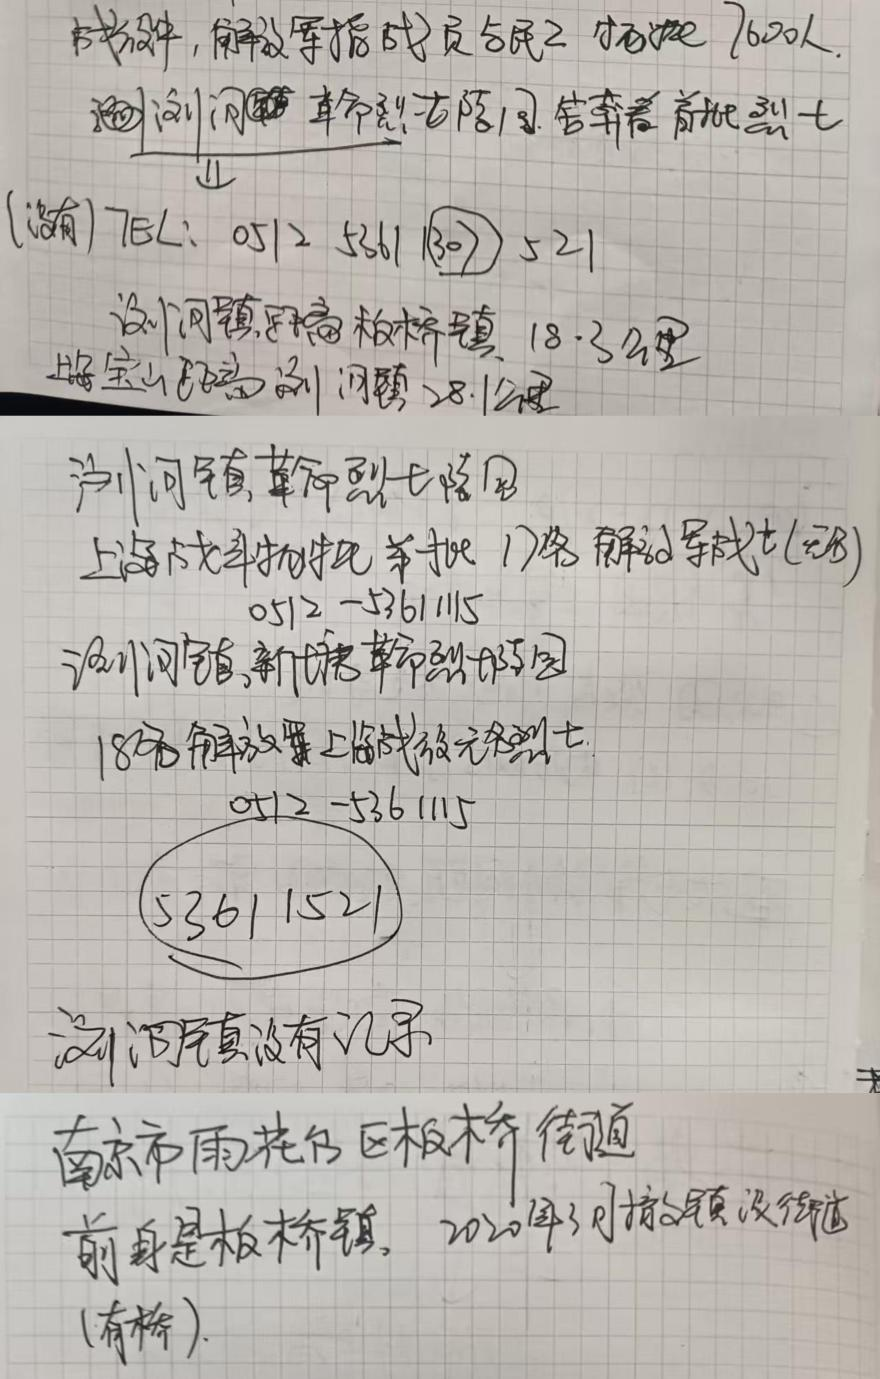 解放军指战员与民工 牺牲 7600人.
浏河 革命烈士陵园 安葬着 首批 烈士
(没有) TEL: 0512 5361 1307 521
浏河镇距离板桥镇 18.3公里
上海宝山距离浏河镇28.1公里
浏河镇革命烈士陵园
上海战斗牺牲第一批 17名 解放军战士(无名)
0512-5361115
浏河镇新塘革命烈士陵园
18名解放军上海战役无名烈士.
0512-5361115
53611521
浏河镇没有记录
南京市雨花台区板桥街道
前身是板桥镇, 2020年3月撤镇设街道
(有桥).